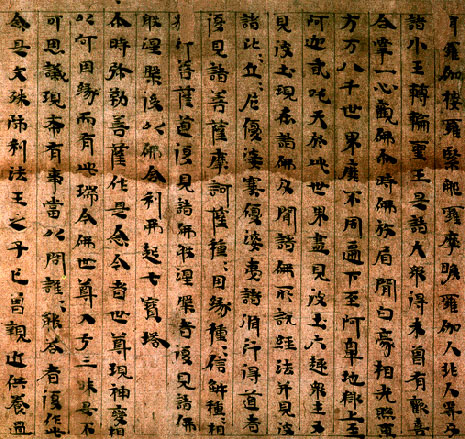 羅伽樓羅緊那羅摩睺伽人非人及
諸小王轉輪聖王是諸大衆得未曾有歡喜
合掌一心觀佛尒時佛放眉間白豪相光照東
方万八千世界靡不周遍下至阿鼻地獄上至
阿迦貳吒天於此世界盡見彼土六趣衆生又
見彼土現在諸佛及聞諸佛所說經法并見彼
諸比〻丘〻尼優婆塞優婆夷諸脩行得道者
復見諸菩薩摩訶薩種〻因緣種〻信解種〻相
行菩薩道復見諸佛般涅槃者復見諸佛
般涅槃後以佛舍利起七寶塔
尒時弥勒菩薩作是念今者世尊現神變相
以何因緣而有此瑞今佛世尊入于三昧是不
可思議現希有事當以問誰〻能荅者復作此
念是文殊師利法王之子已曾親近供養過